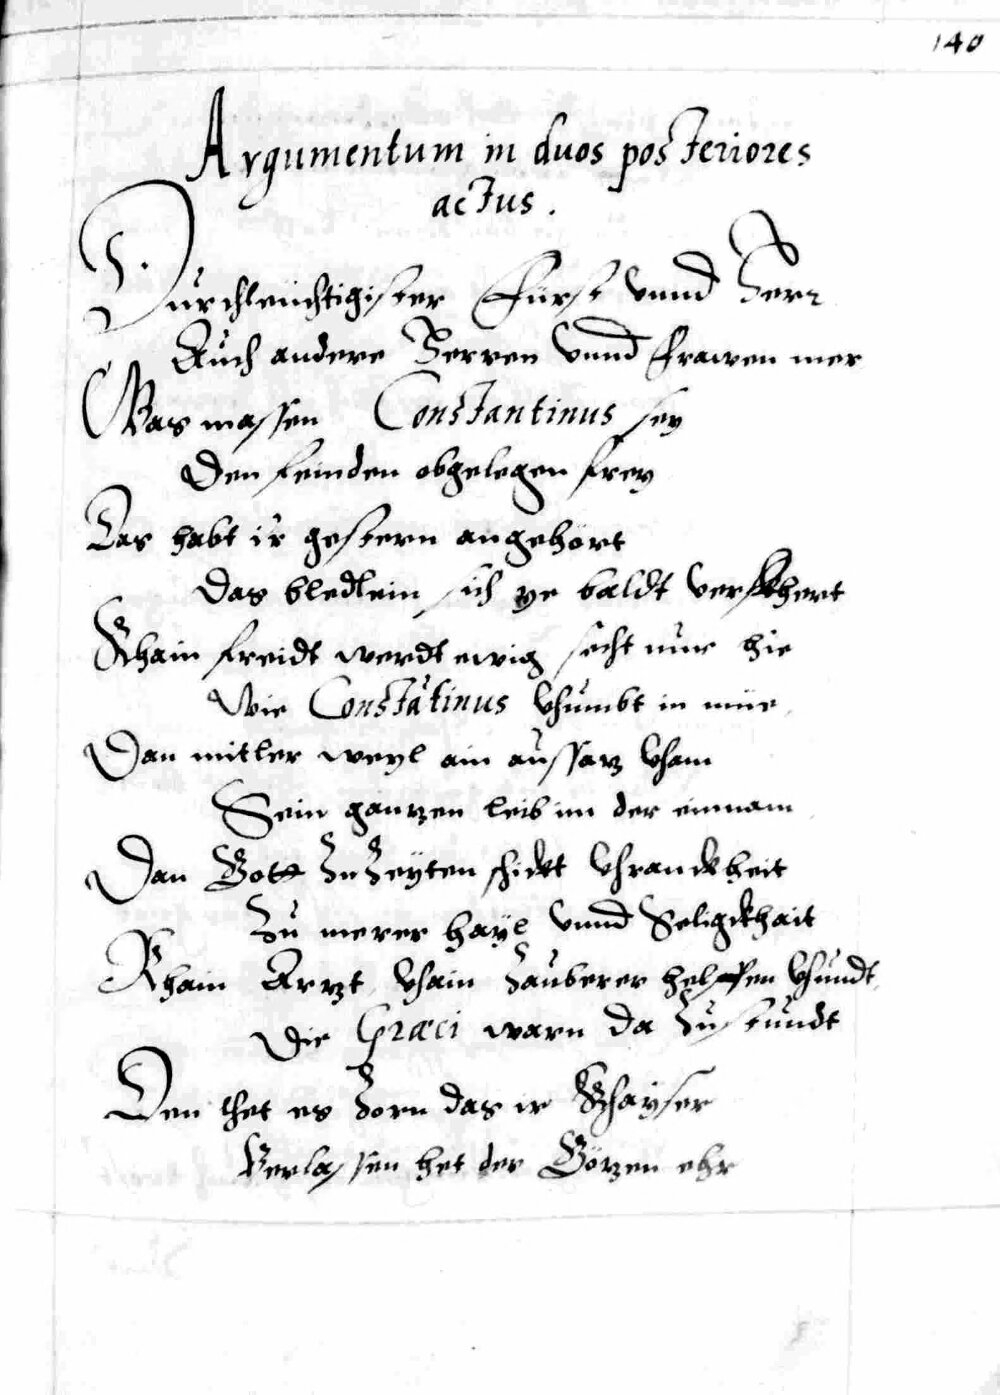 140
Argumentum in duos posteriores
actus.
Durchleüchtigister Fürst vnnd Herr
Auch andere Herren vnnd frawen mer
Was massen Constantinus sey
Den feinden obgelegen frey
Das habt ir gestern angehört
Das bledlein sich ye baldt verkhert
Khain freidt werdt ewig secht nur hie
Wie Constātinus khumbt in müe
Dan mitler weyl ain aussaz kham
Sein ganzen leib im der einnam
Dan Gott zu Zeyten schickt khranckheit
Zu merer hayl vnnd Seligkhait
Khain Arzt, khain Zauberer helffen khundt,
Die Græci warn da zu stundt
Den thet es Zorn das ir Khayser
Verlassen het der Götzen ehr